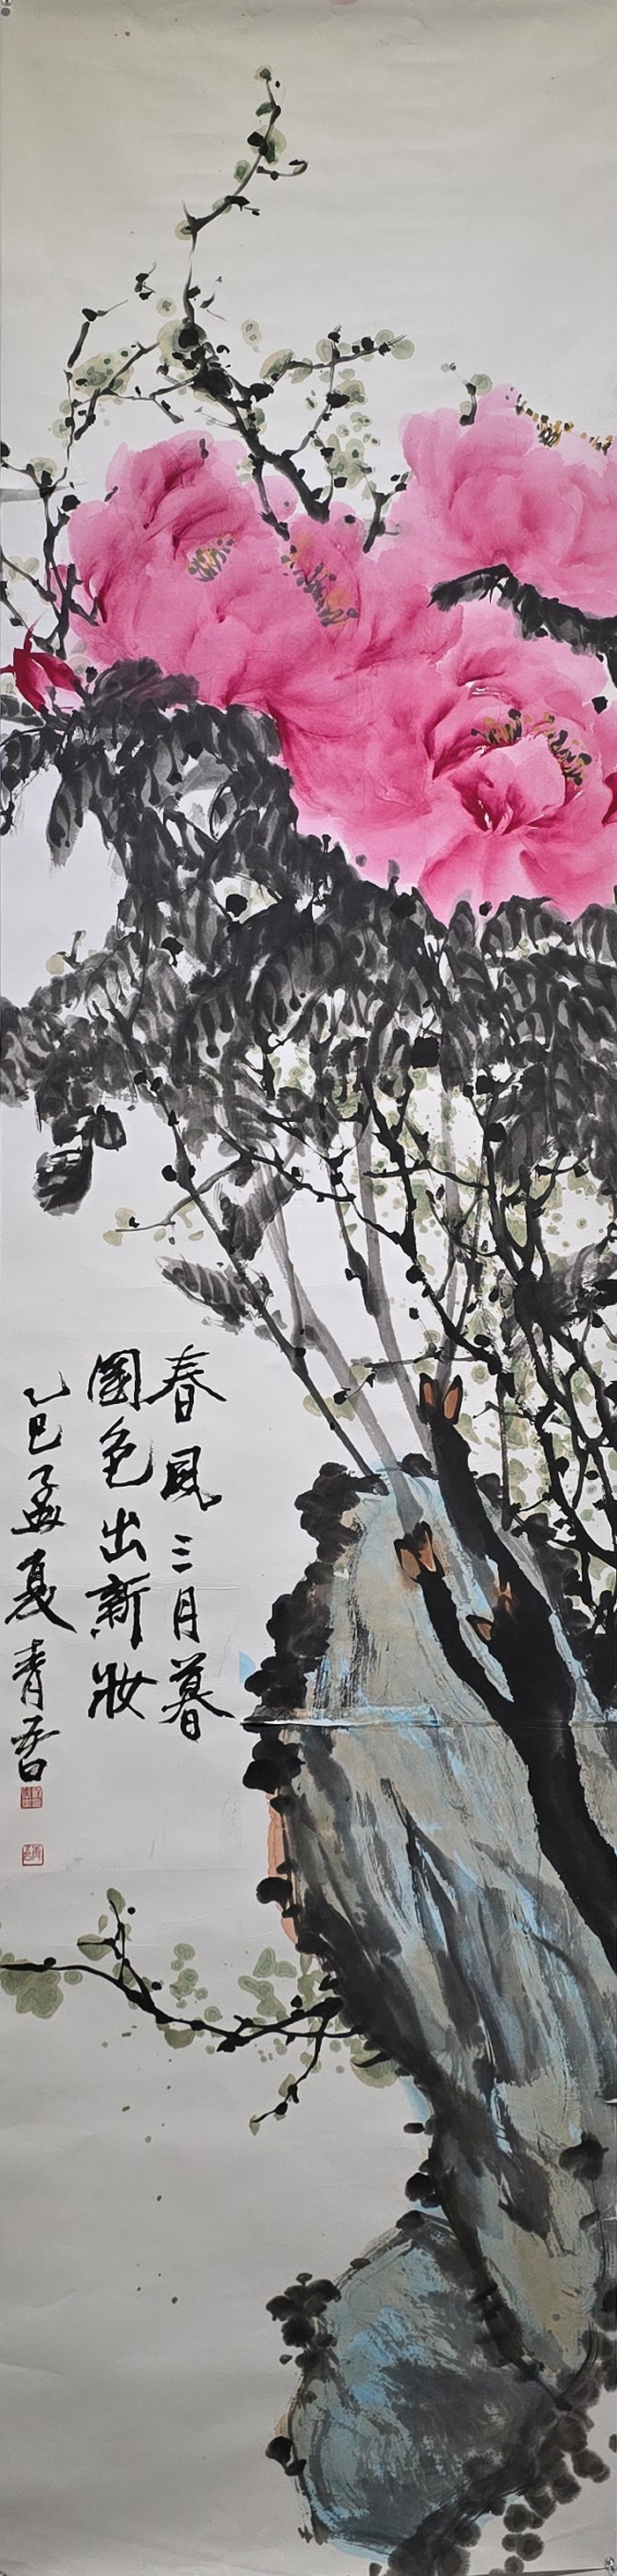 春風三月暮
國色出新妝
乙巳孟夏青吾